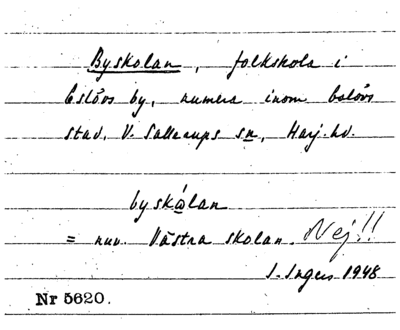 Byskolan, folkskola i
Eslövs by, numera inom Eslövs
stad, V. Sallerups sn, Harj. hd.
byskålan
= nuv. Västra skolan. Nej!!
I. Ingers 1948
Nr 5620.